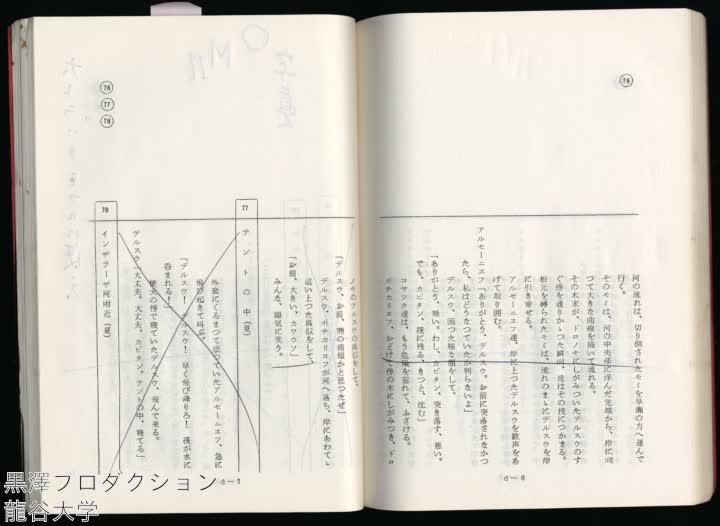 76
河の流れは、切り倒されたモミを早瀬の方へ運んで
行く。
そのモミは、河の中央部に浮んだ先端から、岸に向
つて大きな曲線を描いて流れる。
その木末が、ドロノキにしがみついたデルスウのす
ぐ傍を通りかゝつた瞬間、彼はその枝につかまる。
根元を縛られたモミは、流れのまゝにデルスウを岸
に引き寄せる。
アルセーニエフ達、岸に上つたデルスウを歓声をあ
げて取り囲む。
アルセーニエフ「ありがとう、デルスウ。お前に突落されなかつ
たら、私はどうなつていたか判らないよ」
デルスウ、困つた様な顔をして、
「ありがとう、無い。わし、カピタン、突き落す、悪い。
でも、カピタン、筏に残る。きつと、沈む」
コサツク達は、もう危険を忘れて、ふざける。
ボチカリロフ、おどけて傍の木にしがみつき、ドロ
6—6
ノキのデルスウの真似をして、
「デルスウ、お前、熊の親類かと思つたぜ」
デルスウ、ボチカリロフが河へ落ち、岸にあわてゝ
這い上つた真似をして、
「お前、大きい、カワウソ」
みんな、陽気に笑う。
77
テントの中(夜)
外套にくるまつて眠つていたアルセーニエフ、急に
飛び起きて叫ぶ。
「デルスウ! デルスウ! 早く飛び降りろ! 筏が水に
呑まれる!」
焚火の傍で寝ていたデルスウ、飛んで来る。
デルスウ「大丈夫、大丈夫、カピタン。テントの中、寝てる」
78
インザラーザ河附近(昼)
76
77
78
6—7
黒澤プロダクション
龍谷大学